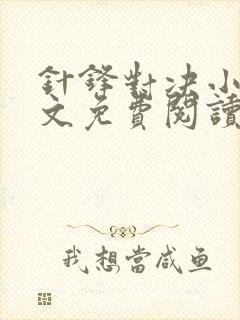 針鋒對决小
文免費閱讀
我想當咸鱼